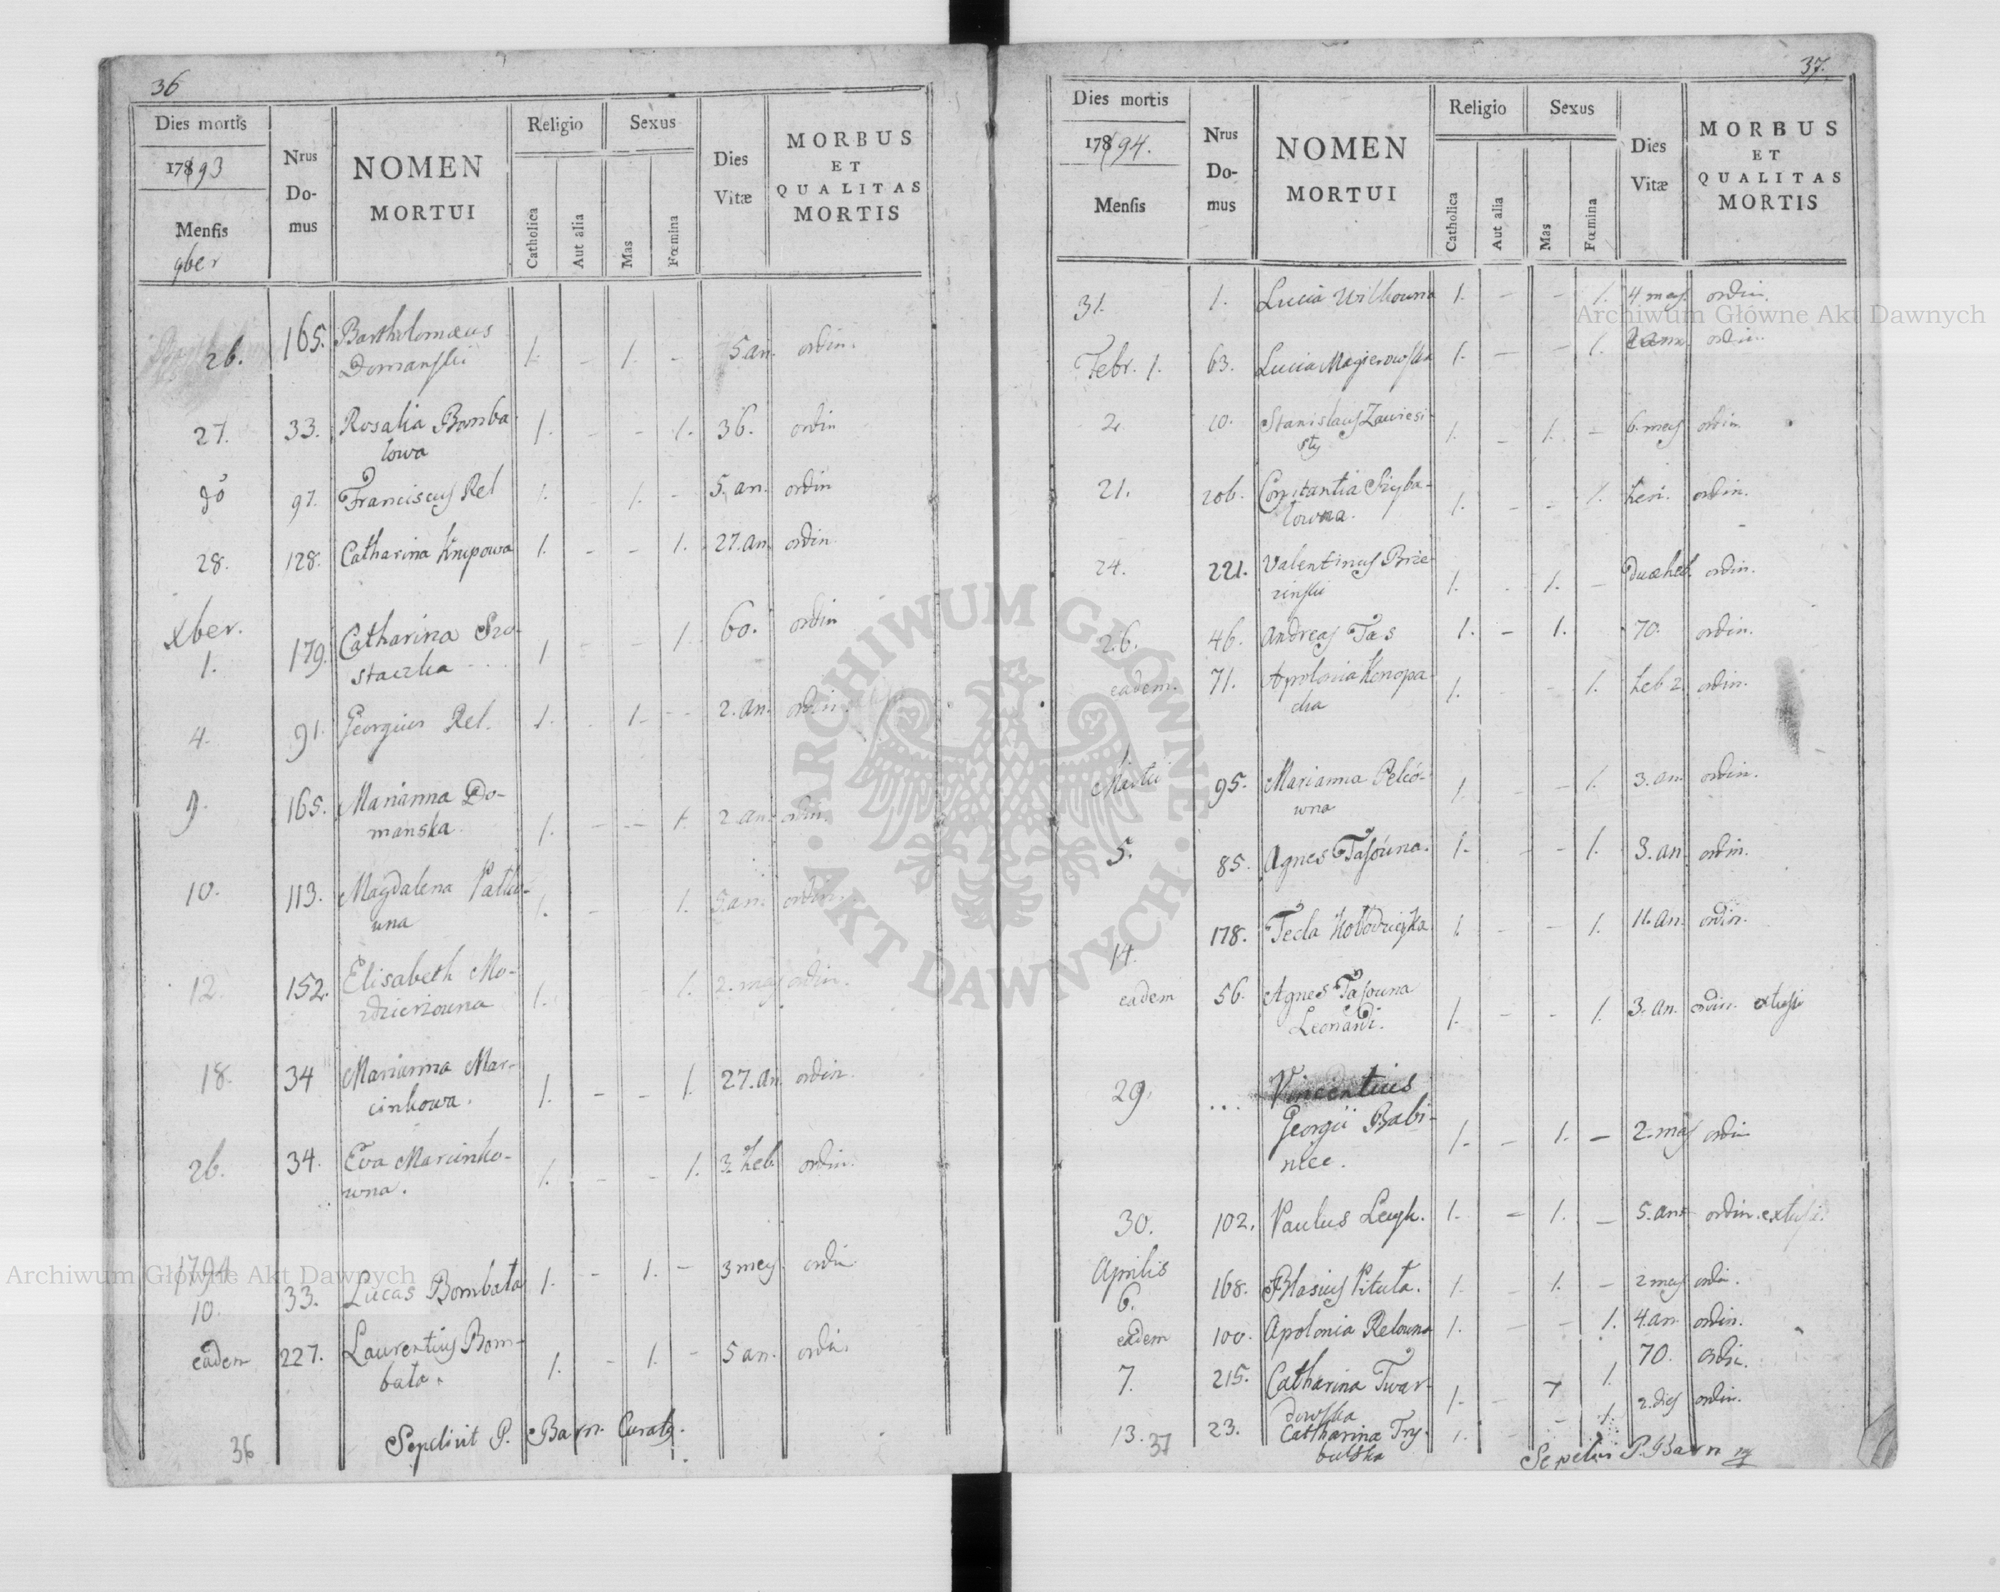 36
Dies mortis
1793
Mensis
9ber
Nrus
Do-
mus
NOMEN
MORTUI
Religio
Catholica
Aut alia
Sexus
Mas
Fœmina
Dies
Vitæ
MORBUS
ET
QUALITAS
MORTIS
26. 165. Bartholomæus
Domanski 1. - 1. - 5 an. ordin.
27. 33. Rosalia Bomba-
towa 1. - - 1. 36. ordin
do 97. Franciscus Rel 1. - 1. - 5. an. ordin
28. 128. Catharina Knipowa 1. - - 1. 27. an. ordin
Xber.
1. 179. Catharina Szo-
staczka 1. - - 1. 60. ordin
4. 91. Georgius Rel. 1. - 1. - 2. an. ordin.
9. 165. Marianna Do-
manska 1. - - 1. 2. an. ordin.
10. 113. Magdalena
una 1. - 1. 5. an. ordin.
12. 152. Elisabeth Mo-
dzierzouna 1. - - 1. 2. mens ordin.
18. 34 Marianna Mar-
cinkowa. 1. - - 1. 27. an. ordin.
26. 34. Eva Marcinko-
wna. 1. - - 1. 3 heb. ordin.
1794
10. 33. Lucas Bombata 1. - 1. - 3 mens ordin
eadem 227. Laurentius Bom-
bata. 1. - 1. - 5 an. ordin.
Sepelivit P. Barn. Curatus.
36
37.
Dies mortis
1794.
Mensis
Nrus
Do-
mus
NOMEN
MORTUI
Religio
Catholica
Aut alia
Sexus
Mas
Fœmina
Dies
Vitæ
MORBUS
ET
QUALITAS
MORTIS
31. 1. Lucia Wilkouna 1. - - 1. 4 mens ordin.
Febr. 1. 63. Lucia Magierowska 1. - - 1. ordin.
2. 10. Stanislaus Zawiesi-
sty 1. - 1. - 6. mens ordin
21. 206. Constantia Szyba-
towna. 1. - - 1. ordin.
24. 221. Valentinus Brze-
zinski 1. - 1. - Duæ heb. ordin.
26. 46. Andreas Tas 1. - 1. 70. ordin.
eadem. 71. Apolonia Konopa-
cka 1. - - 1. heb 2. ordin.
Martii 95. Marianna Pelcó-
wna 1. - - 1. 3. an ordin.
5. 85. Agnes Tasówna. 1. - - 1. 3. an ordin.
14. 178. Tecla Kołodzieyka 1. - - 1. 11. an. ordin.
eadem 56. Agnes Tasouna
Leonardi. 1. - - 1. 3. an. ordin. extussi
29. ... Vincentius
Georgii Babi-
nice. 1. - 1. - 2. mens ordin
30. 102. Paulus Leyk. 1. - 1. - 5. ann ordin. extussi.
Aprilis
6. 168. Blasius Pituta. 1. - 1. - 2 mens ordin.
eadem 100. Apolonia Relouna 1. - - 1. 4. an. ordin.
7. 215. Catharina Twar-
dowska 1. - 1. 70. ordin.
13. 23. Catharina Try-
bulska 1. - 1. 2. dies ordin.
37
Archiwum Główne Akt Dawnych
Archiwum Główne Akt Dawnych
ARCHIWUM GŁÓWNE · AKT DAWNYCH ·